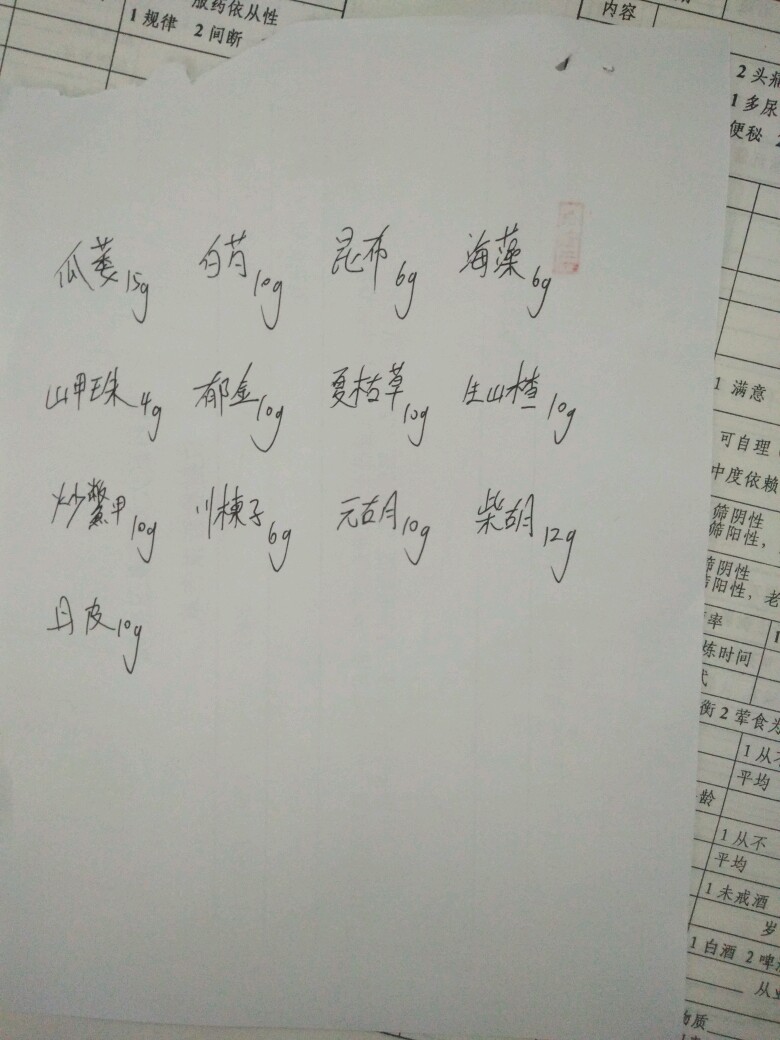 服药依从性
1 规律 2 间断
内容
2 头痛
1 多尿
便秘
瓜蒌15g 白芍10g 昆布6g 海藻6g
山甲珠4g 郁金10g 夏枯草10g 生山楂10g
炒鳖甲10g 川楝子6g 元胡10g 柴胡12g
丹皮10g
1 满意
可自理
中度依赖
筛阴性
筛阳性，
筛阴性
阳性，老
率
炼时间
式
衡 2 荤食为
1 从不
平均
龄
1 从不
平均
1 未戒酒
岁
1 白酒 2 啤
从业
物质